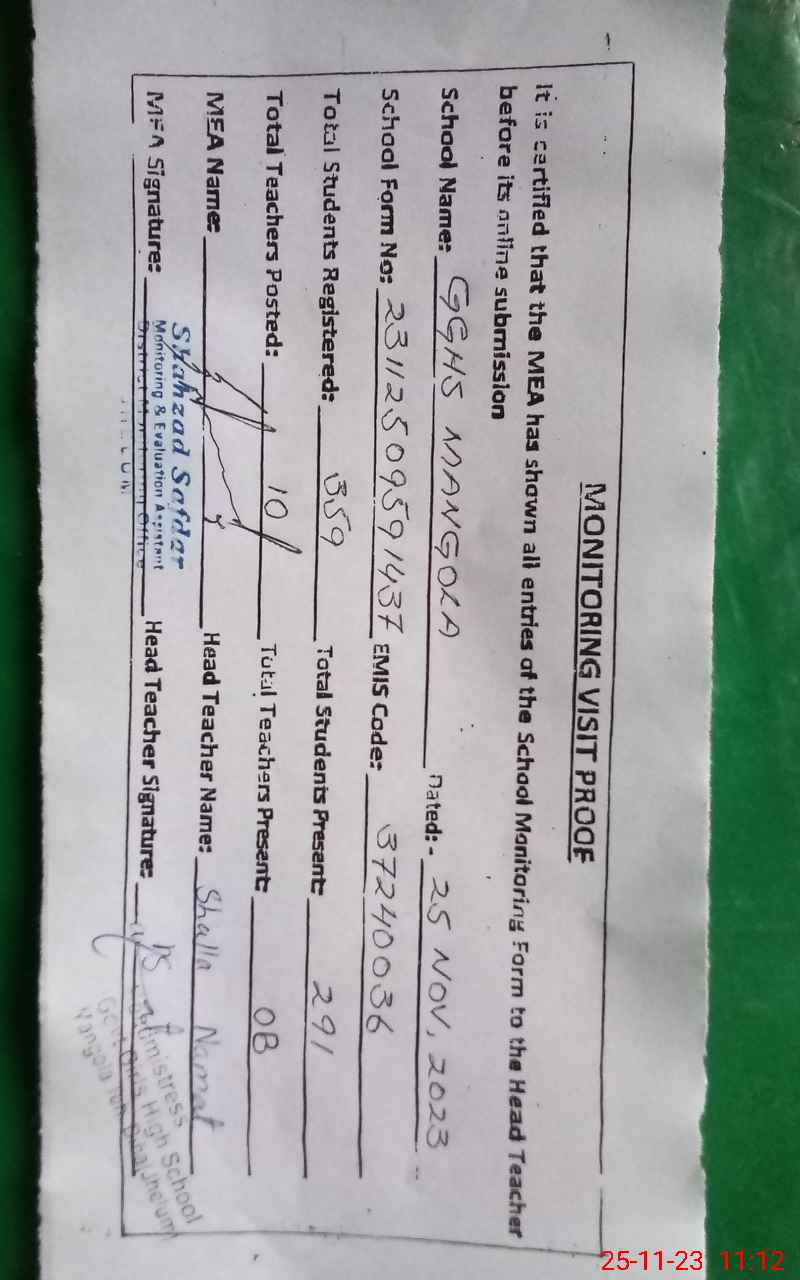 MONITORING VISIT PROOF
It is certified that the MEA has shown all entries of the School Monitoring Form to the Head Teacher
before its online submission
School Name: GGHS MANGOLA Dated:- 25 NOV, 2023
School Form No: 23112509591437 EMIS Code: 37240036
Total Students Registered: 359 Total Students Present: 291
Total Teachers Posted: 10 Total Teachers Present: 08
MEA Name: Head Teacher Name: Shalla Namat
Shahzad Safdar
Monitoring & Evaluation Assistant
District Monitoring Office
MEA Signature: Head Teacher Signature:
Govt. Girls High School
25-11-23 11:12